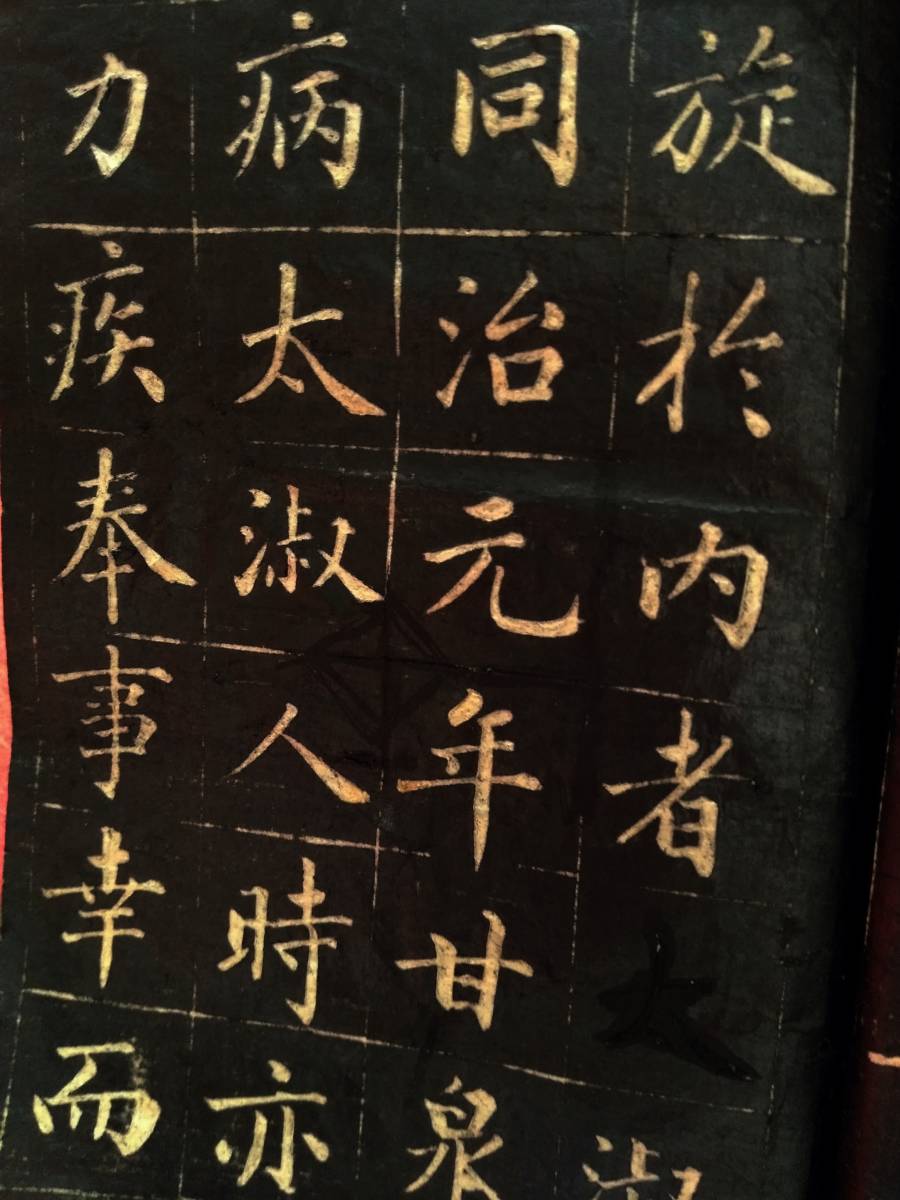 旋於內者太淑
同治元年甘泉
病太淑人時亦
力疾奉事幸而